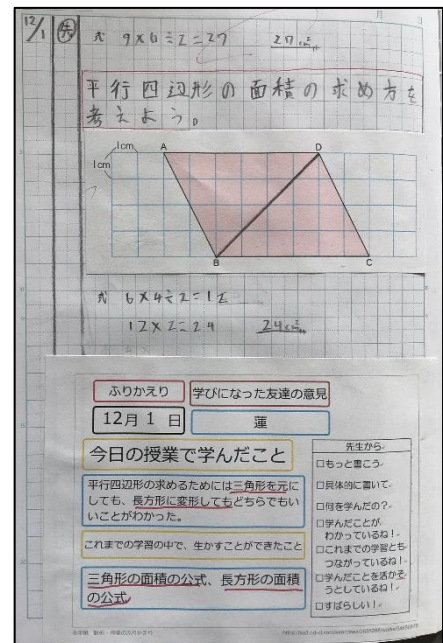 12/1
先 式 9×6÷2=27 27cm²
平行四辺形の面積の求め方を
考えよう。
1cm A D
1cm
B C
式 6×4÷2=12
12×2=24 24cm²
ふりかえり 学びになった友達の意見
12月 1 日 蓮
今日の授業で学んだこと
平行四辺形の求めるためには三角形を元に
しても、長方形に変形してもどちらでもい
いことがわかった。
これまでの学習の中で、生かすことができたこと
三角形の面積の公式、長方形の面積
の公式
先生から
□もっと書こう
□具体的に書いて
□何を学んだの？
□学んだことが
わかっているね！
□これまでの学習とも
つながっているね！
□学んだことを活かそ
うとしているね！
□すばらしい！